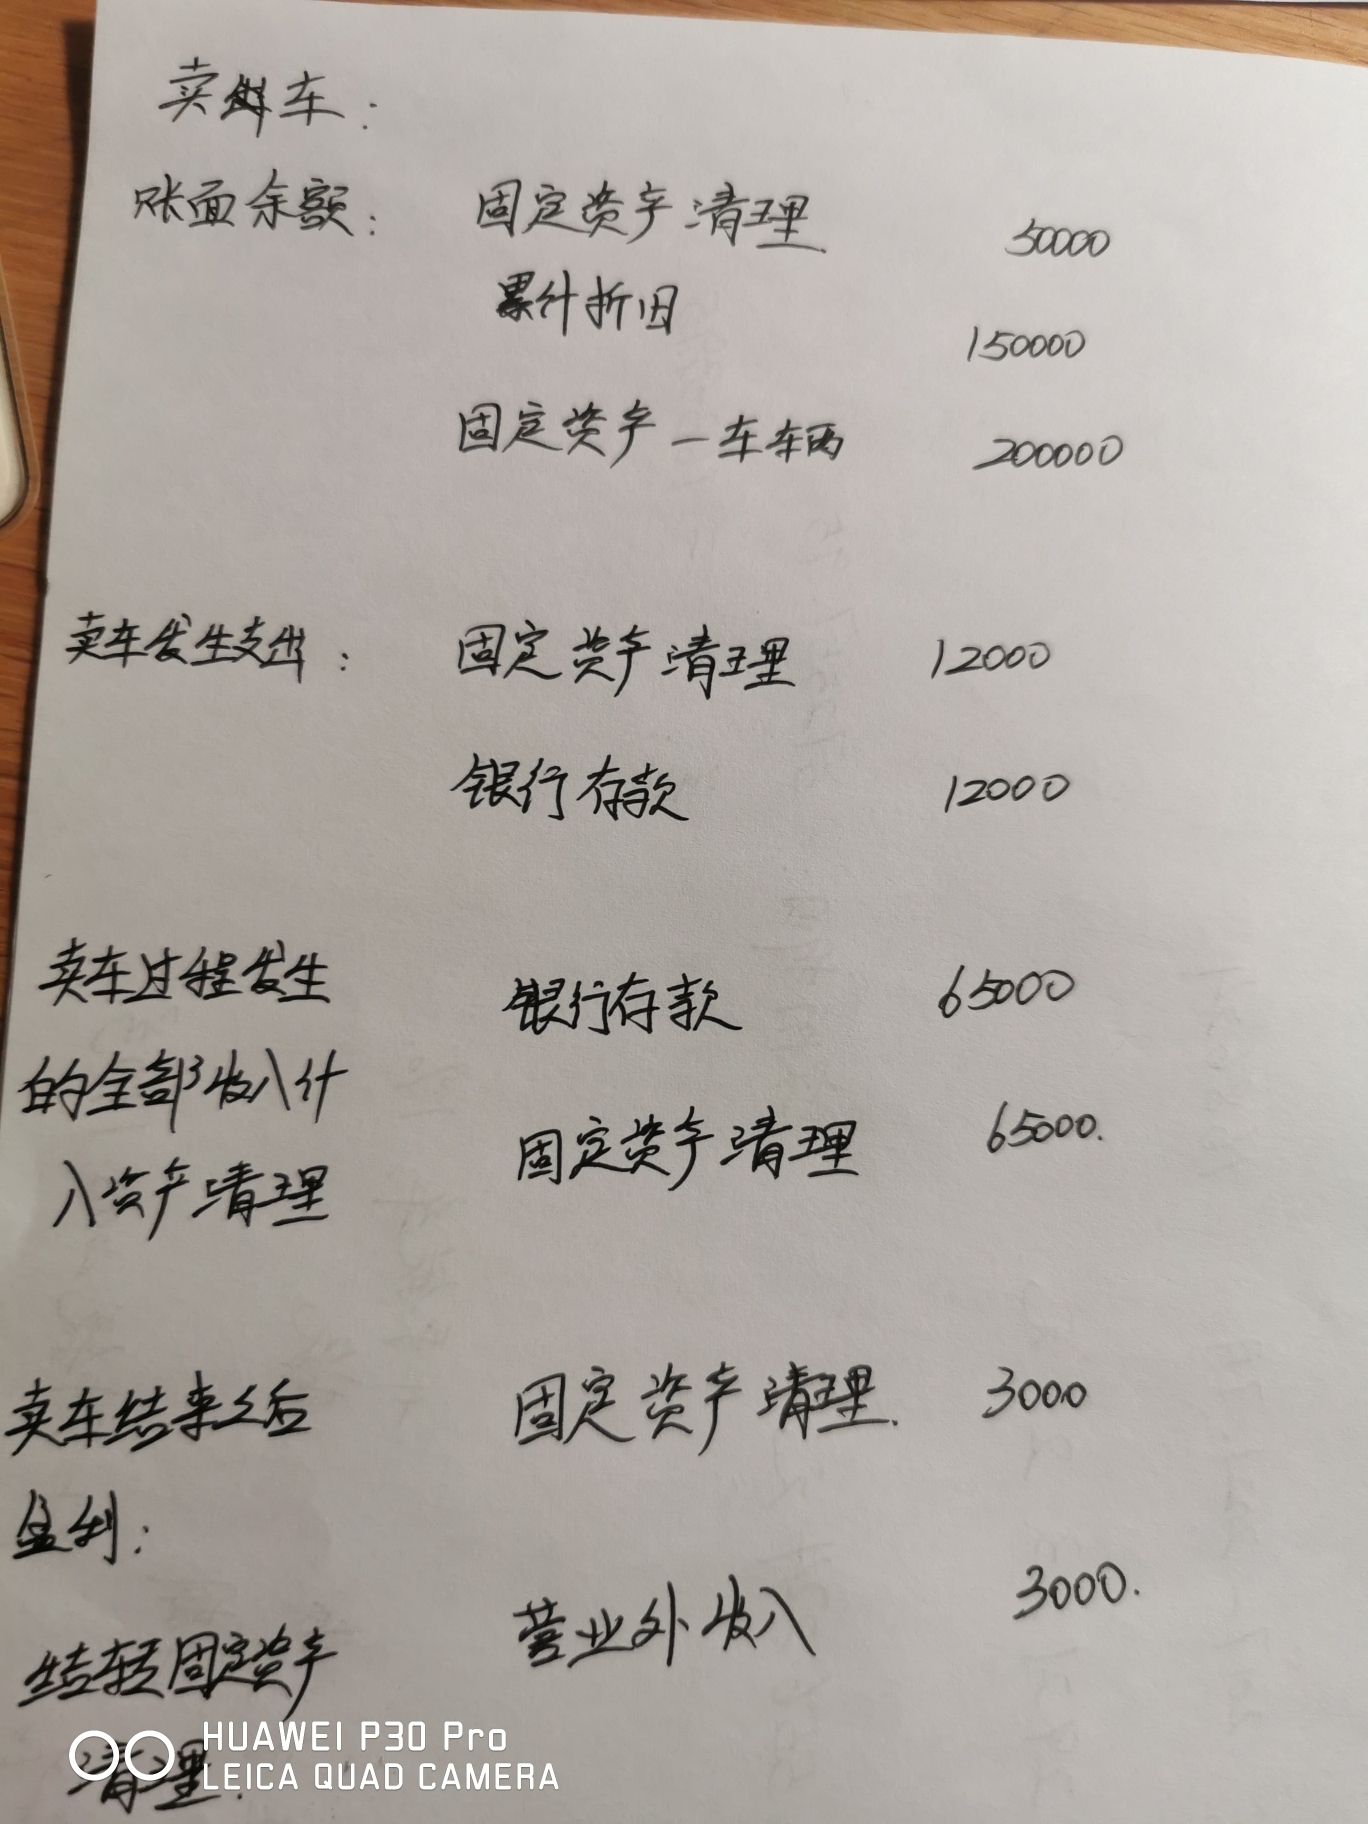 卖车：
账面余额： 固定资产清理 50000
累计折旧 150000
固定资产一车车辆 200000
卖车发生支出： 固定资产清理 12000
银行存款 12000
卖车过程发生 银行存款 65000
的全部收入计
固定资产清理 65000.
入资产清理
卖车结束之后 固定资产清理. 3000
盈利：
营业外收入 3000.
结转固定资产
清理.
HUAWEI P30 Pro
LEICA QUAD CAMERA